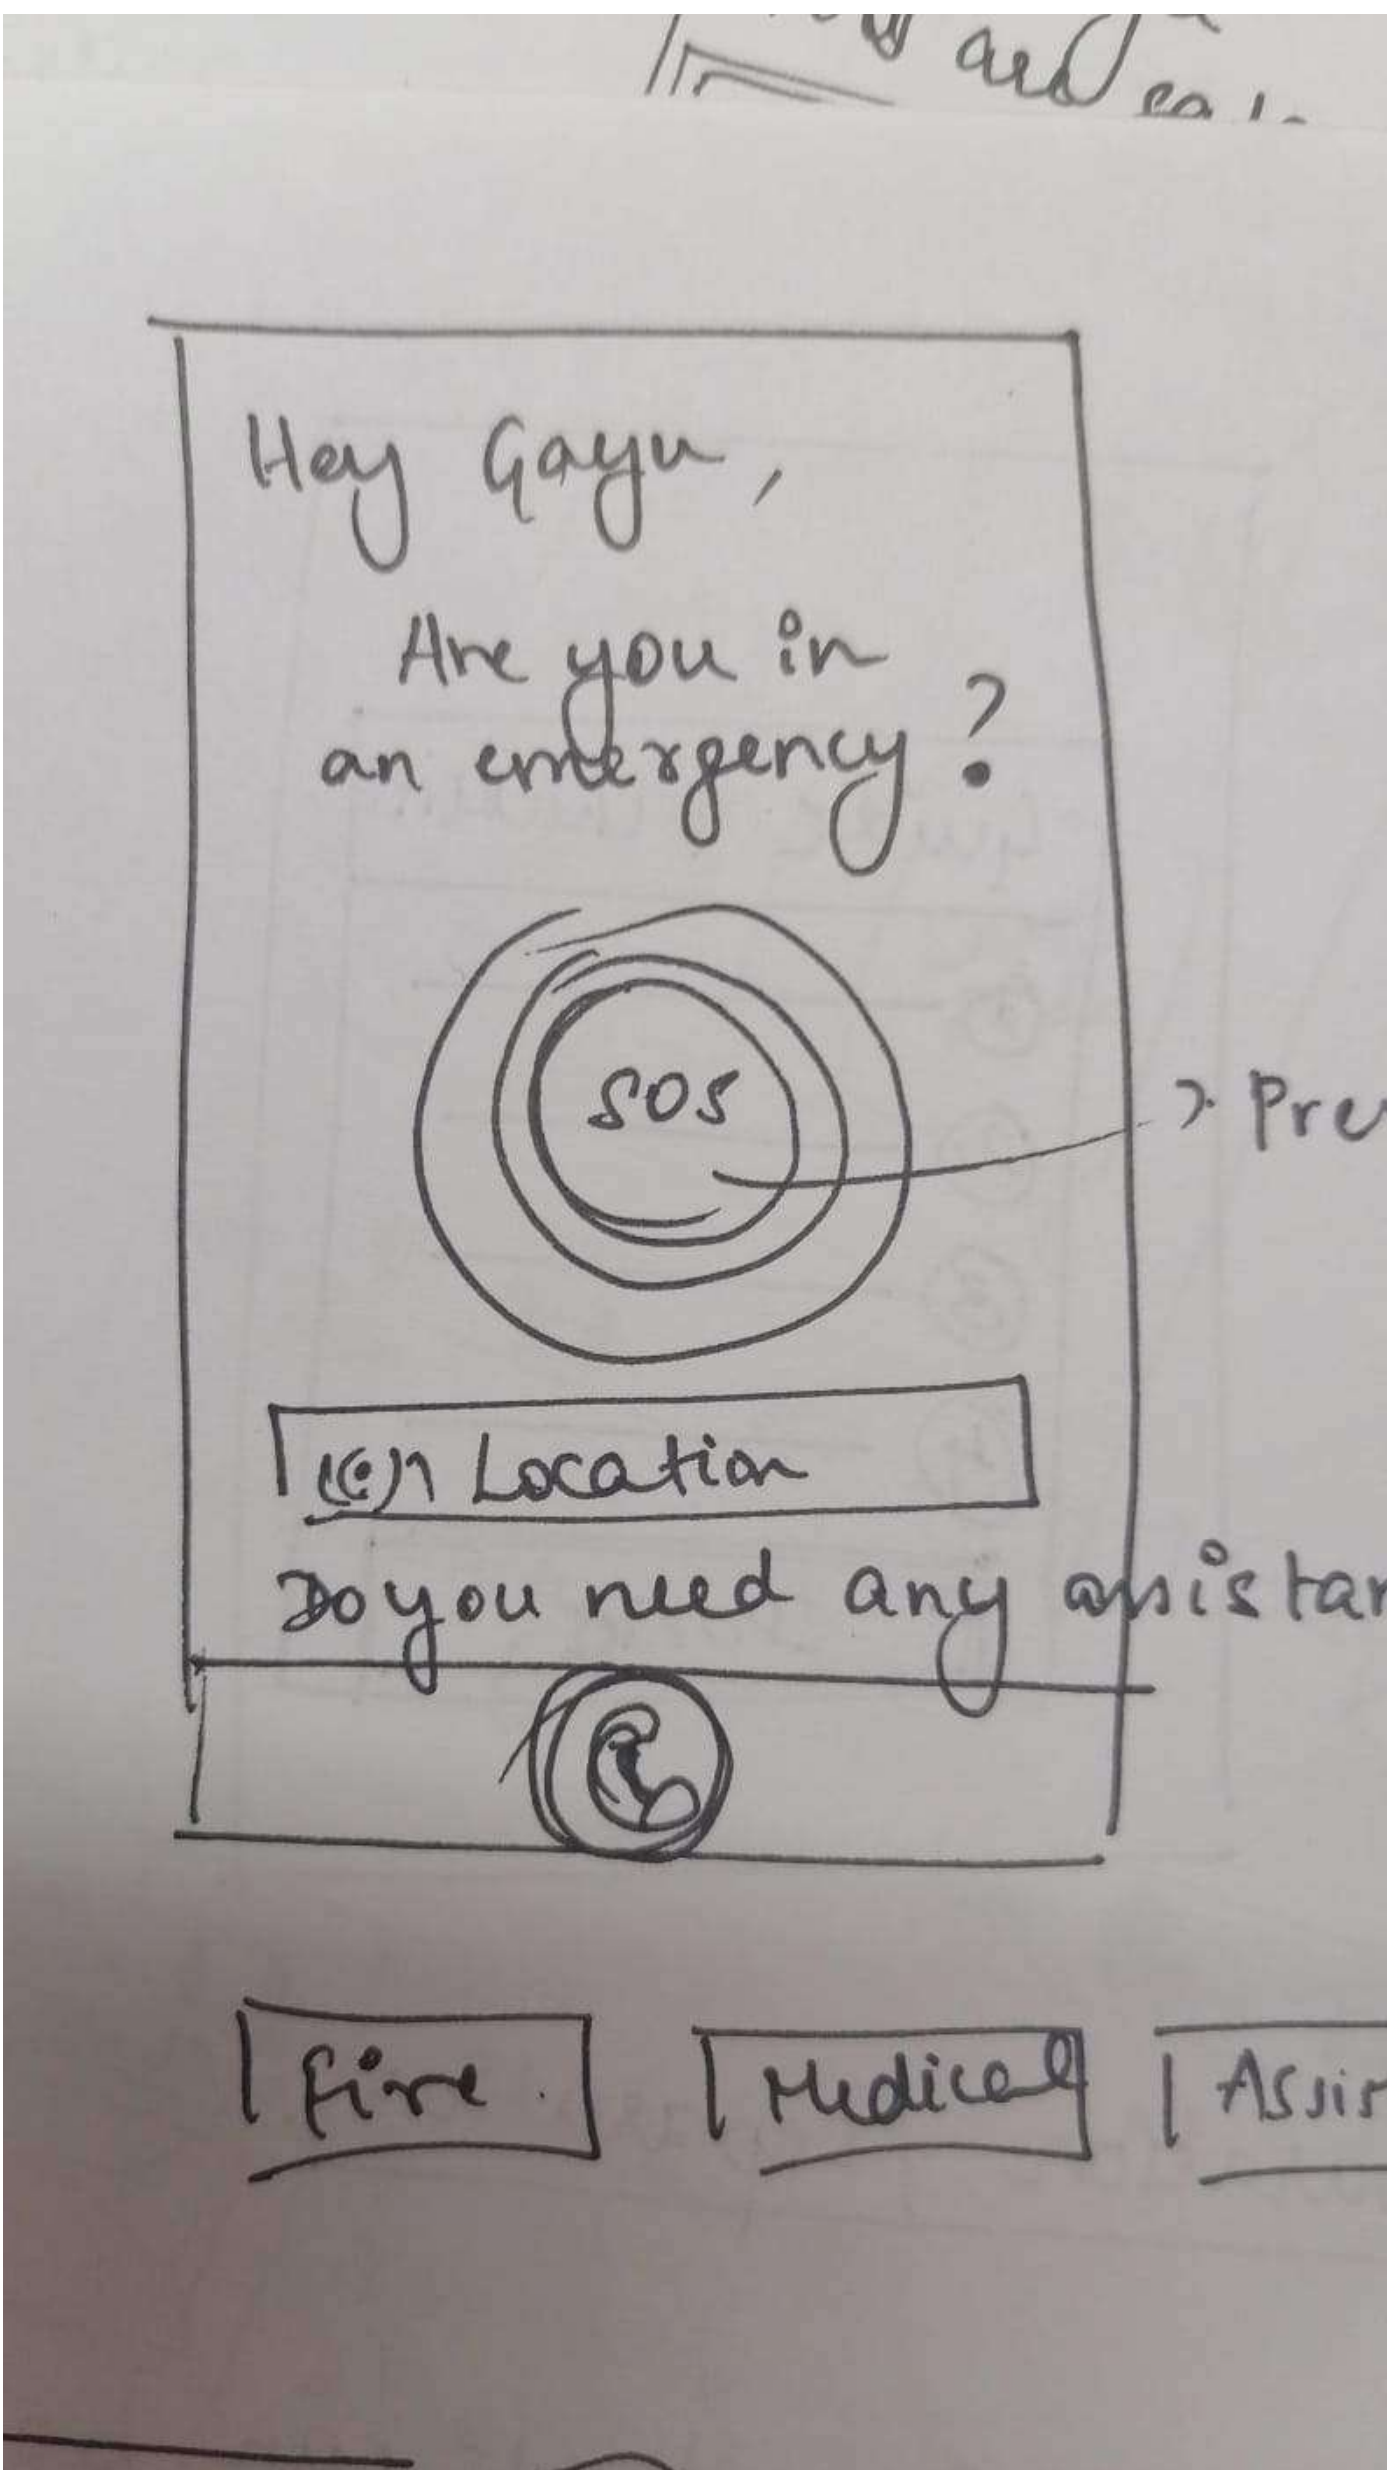 are
Hey Gayu,
Are you in
an emergency?
SOS
Pre
Location
Do you need any assistan
Fire.
Medical
Assis